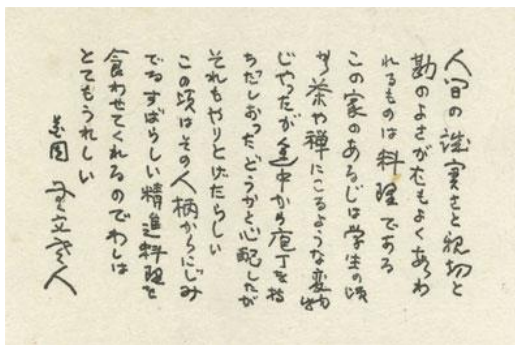 人間の誠実さと親切と
勘のよさがもっともよくあらわ
れるものは料理である
この家のあるじは学生の頃
から茶や禅にこるような変物
じゃったが途中から庖丁を持
ちだしおったどうかと心配したが
それもやりとげたらしい
この頃はその人柄からにじみ
でるすばらしい精進料理を
食わせてくれるのでわしは
とてもうれしい